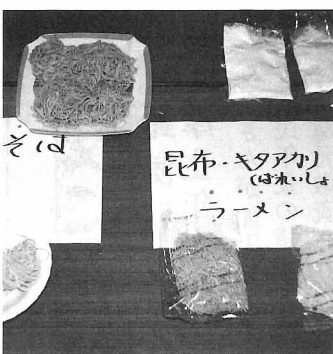 そば
昆布・キタアカリ
(ばれいしょ
ラーメン